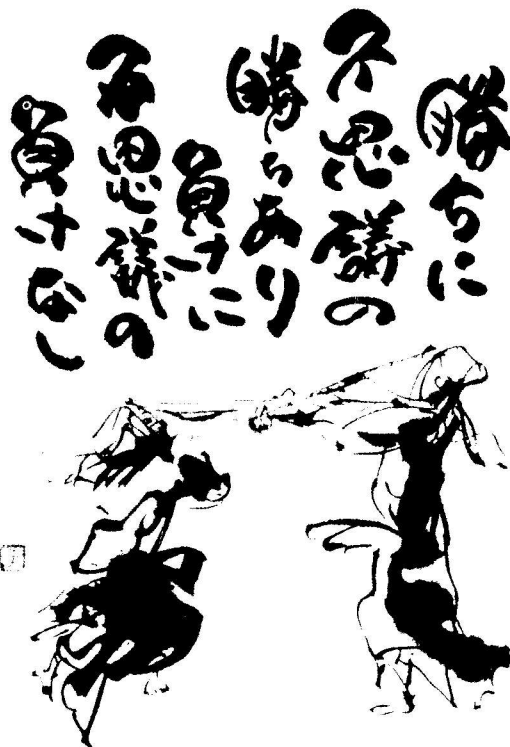 勝ちに
不思議の
勝ちあり
負けに
不思議の
負けなし